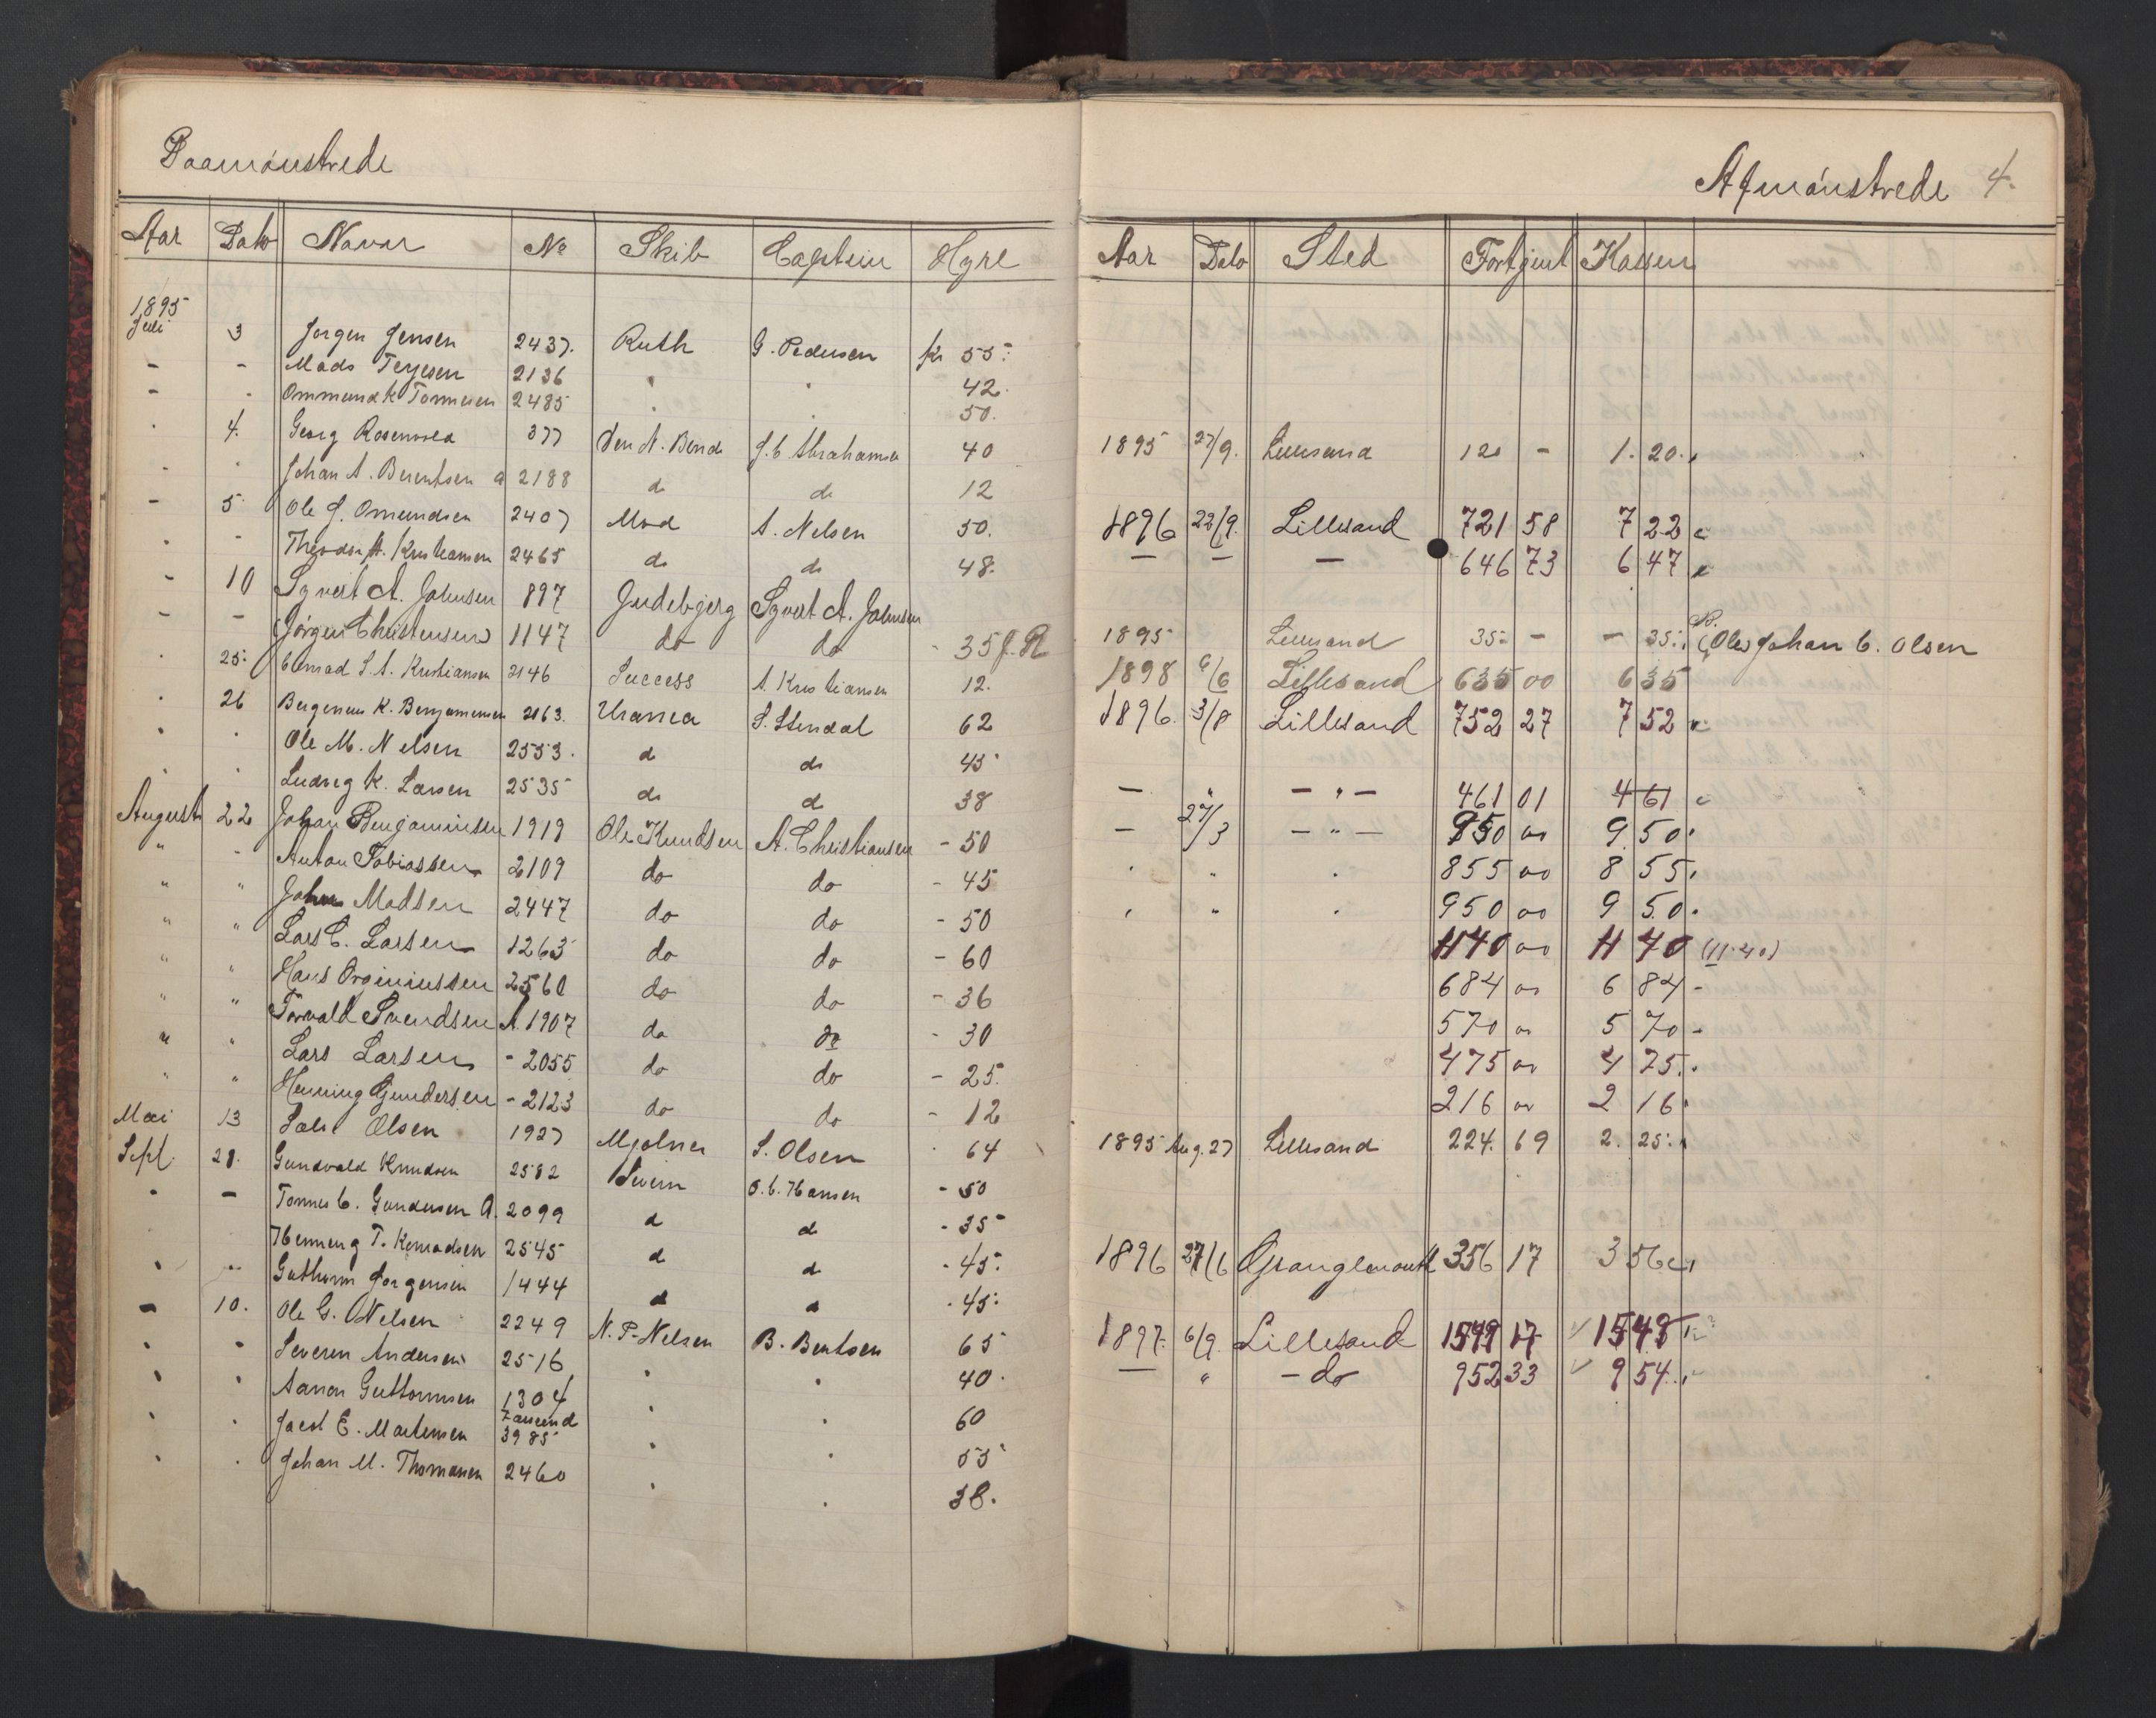 Paamönstrede
Afmönstrede 4.
Aar Dato Navn No Skib Captein Hyre
Aar Dato Sted Fortjent Kassen
1895
Juli 3 Jorgen Jensen 2437. Ruth G. Pedersen kr 55.
- - Mads Terjesen 2136 " " 42.
- " Ommund K Tonnesen 2485 " " 50.
" 4. Georg Rosenvold 377 J. C Abrahamsen 40 1895 27/9. Lillesand 120 - 1. 20.
- " Johan A. Berentsen a 2188 do do 12
- 5. Ole J. Omundsen 2407 Mod A. Nelsen 50. 1896 22/9. Lillesand 721 58 7 22
" - Theodor A. Kristiansen 2465 do do 48. — — — 646 73 6 47
- 10 Syvert A. Johnsen 897 Gudebjerg Syvert A. Johnsen
- - (Jörgen Christensen) 1147 do do - 35 1895 Lillesand 35 - - 35. (Ole) Johan C. Olsen
" 25. Conrad S. A. Kristiansen 2146 Success A. Kristiansen 12. 1898 6/6 Lillesand 635 00 6 35
" 26 K. Benjaminsen 2163. Urania S. Stendal 62 1896. 3/8 Lillesand 752 27 7 52
" " Ole M. Nelsen 2553. do do 45
" " Ludvig K. Larsen 2535 do do 38 — " — " — 461 01 4 61
August 22 Johan Benjaminsen 1919 Ole Knudsen A. Christiansen - 50 — 27/3 — " — 950 00 9 50
" - Anton Tobiassen 2109 do do - 45 " " " 855 00 8 55
" " John Madsen 2447 do do - 50 " " " 950 00 9 50
" " Lars C. Larsen 1263 do do - 60 1140 00 11 40 (11.40)
" " Hans Orginiussen 2560 do do - 36 684 00 6 84 -
" " Torvald Svendsen A. 1907 do do - 30 570 00 5 70 -
" " Lars Larsen - 2055 do do - 25. 475 00 4 75.
" " Henning Gundersen - 2123 do do - 12 216 00 2 16
Mai 13 Olsen 1927 Mjolner S. Olsen 64 1895 Aug. 27 Lillesand 224. 69 2. 25.
Sept. 28. Gundvald Knudsen 2582 Severn O. C. Hansen - 50
" - Tonnes C. Gundersen A. 2099 do do - 35
Henning T. Konradsen 2545 do do - 45. 1896 27/6 Grangemouth 356 17 3 56
" " Guthorm Jorgensen 1444 do do - 45.
- 10. Ole G. Nelsen 2249 N. P. Nelsen B. Bentsen 65 1897. 6/9. Lillesand 1549 17 15 49
" " Severin Andersen 2516 " " 40. — " - do 952 33 9 54.
" " Aanon Guttormsen 1304 " " 60
" " Jacob E. Martensen 3985 " " 55
" " Johan M. Thomasen 2460 " " 38.